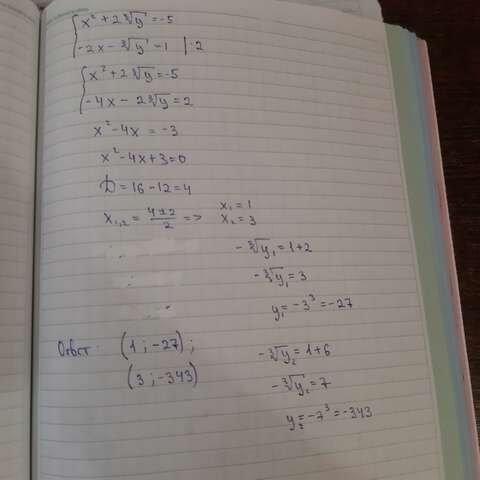 x² + 2∛y = -5
-2x - ∛y = 1 | ·2
x² + 2∛y = -5
-4x - 2∛y = 2
x² - 4x = -3
x² - 4x + 3 = 0
D = 16 - 12 = 4
x₁,₂ = (4 ± 2)/2 => x₁ = 1
x₂ = 3
-∛y₁ = 1 + 2
-∛y₁ = 3
y₁ = -3³ = -27
Ответ: (1; -27);
(3; -343)
-∛y₂ = 1 + 6
-∛y₂ = 7
y₂ = -7³ = -343